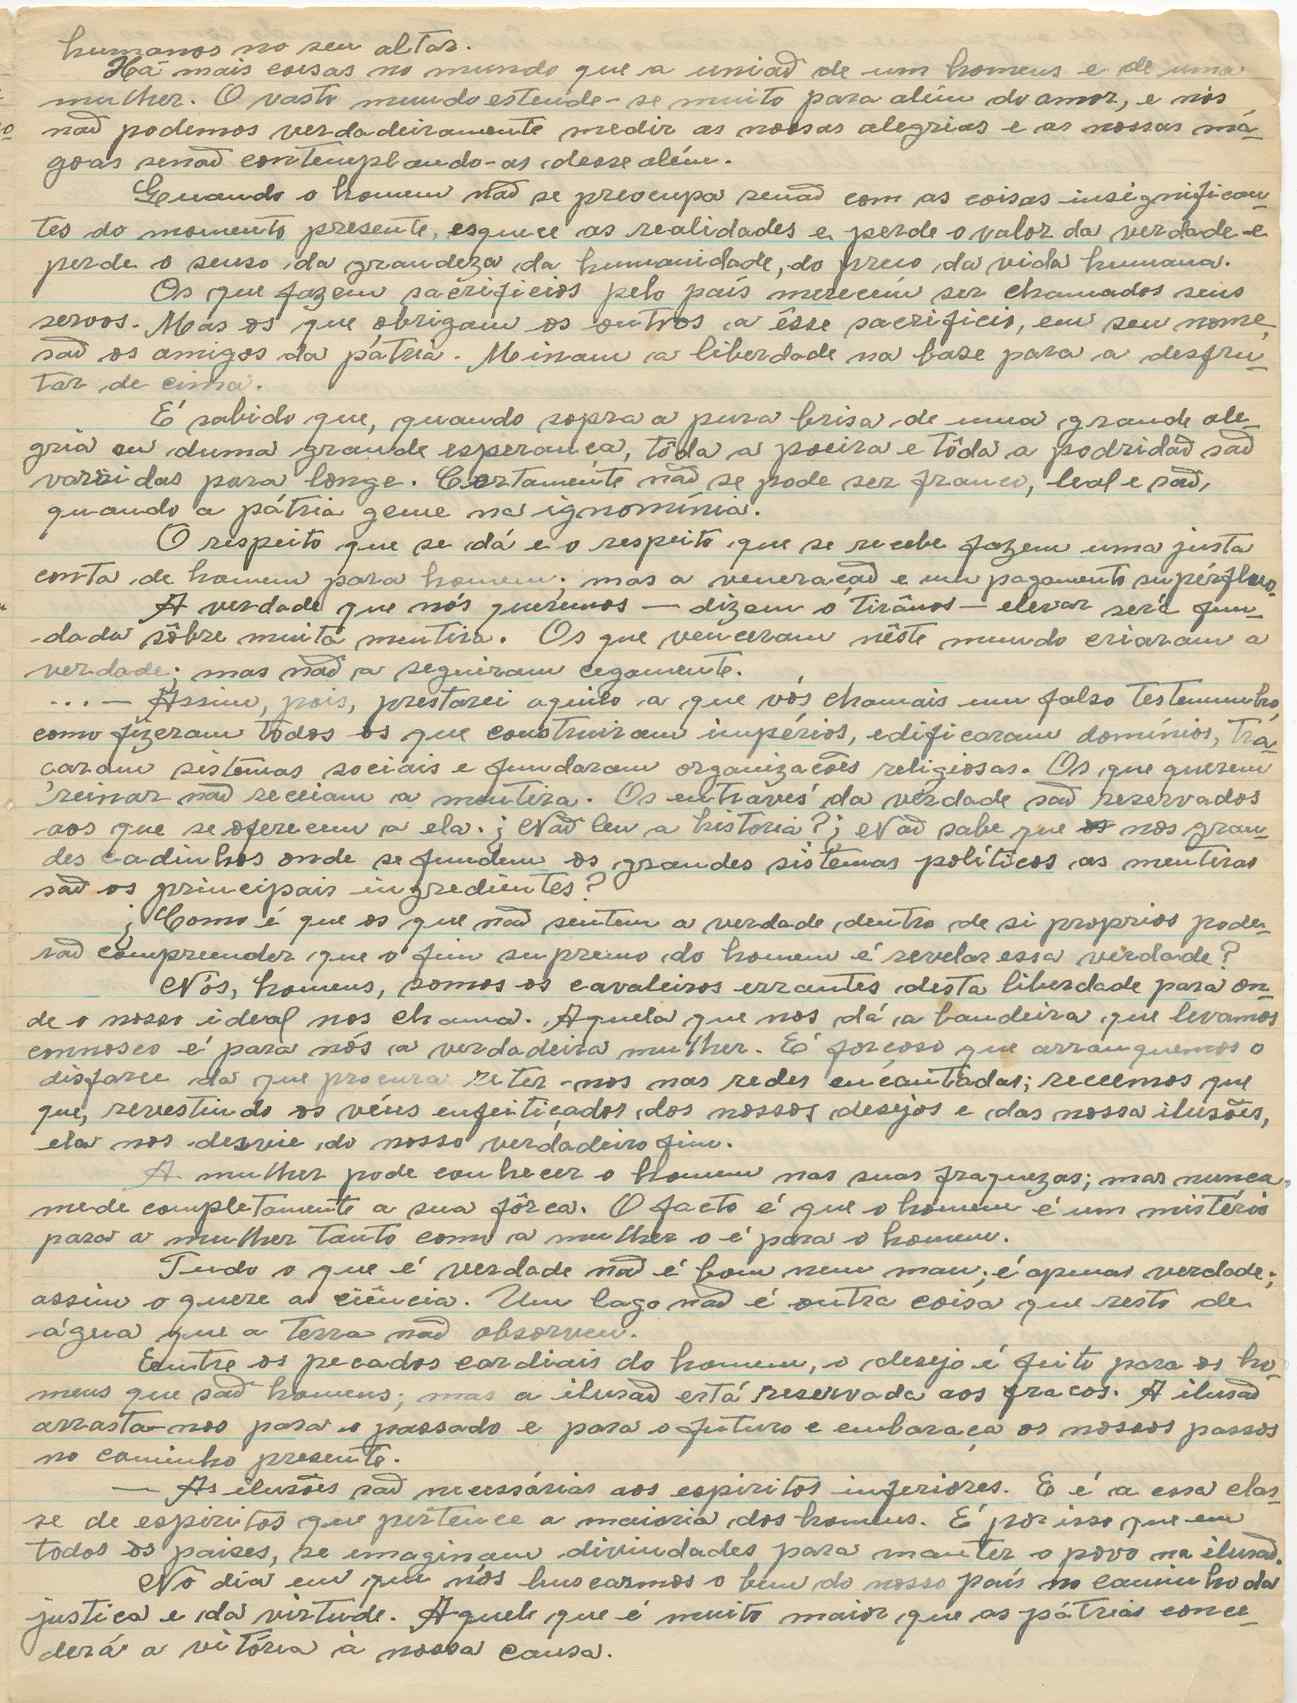 humanos no seu altar.
Há mais coisas no mundo que a união de um homem e de uma
mulher. O vasto mundo estende-se muito para além do amor, e nós
não podemos verdadeiramente medir as nossas alegrias e as nossas má-
goas senão contemplando-as desse além.
Quando o homem não se preocupa senão com as coisas insignifican-
tes do momento presente, esquece as realidades e perde o valor da verdade e
perde o senso da grandeza da humanidade, do preço da vida humana.
Os que fazem sacrifícios pelo país merecem ser chamados seus
servos. Mas os que obrigam os outros a êsse sacrifício, em seu nome,
são os amigos da pátria. Minam a liberdade na base para a desfru-
tar de cima.
É sabido que, quando sopra a pura brisa de uma grande ale-
gria ou duma grande esperança, tôda a poeira e tôda a podridão são
varridas para longe. Certamente não se pode ser franco, leal e são,
quando a pátria geme na ignomínia.
O respeito que se dá e o respeito que se recebe fazem uma justa
conta de homem para homem; mas a veneração e um pagamento supérfluo.
A verdade que nós queremos — dizem o tirânos — elevar será fun-
dada sôbre muita mentira. Os que venceram nêste mundo criaram a
verdade; mas não a seguiram cegamente.
... — Assim, pois, prestarei aquilo a que vós chamais um falso testemunho,
como fizeram todos os que construiram impérios, edificaram domínios, tra-
çaram sistemas sociais e fundaram organizações religiosas. Os que querem
reinar não receiam a mentira. Os entraves da verdade são reservados
aos que se oferecem a ela. ¿ Não leu a historia? ¿ Não sabe que nos gran-
des cadinhos onde se fundem os grandes sistemas políticos as mentiras
são os principais ingredientes?
¿ Como é que os que não sentem a verdade dentro de si proprios pode-
rão compreender que o fim supremo do homem é revelar essa verdade?
Nós, homens, somos os cavaleiros errantes desta liberdade para on-
de o nosso ideal nos chama. Aquela que nos dá a bandeira que levamos
connosco é para nós a verdadeira mulher. É forçoso que arranquemos o
disfarce da que procura reter-nos nas redes encantadas; receemos que
que, revestindo os véus enfeitiçados dos nossos desejos e das nossa ilusões,
ela nos desvie do nosso verdadeiro fim.
A mulher pode conhecer o homem nas suas fraquezas; mas nunca
mede completamente a sua fôrça. O facto é que o homem é um mistério
para a mulher tanto como a mulher o é para o homem.
Tudo o que é verdade não é bom nem mau; é apenas verdade;
assim o quere a ciência. Um lago não é outra coisa que resto de
água que a terra não absorveu.
Entre os pecados cardiais do homem, o desejo é feito para os ho-
mens que são homens; mas a ilusão está reservada aos fracos. A ilusão
arrasta-nos para o passado e para o futuro e embaraça os nossos passos
no caminho presente.
— As ilusões são necessárias aos espiritos inferiores. E é a essa clas-
se de espiritos que pertence a maioria dos homens. É por isso que em
todos os paises, se imaginam divindades para manter o povo na ilusão.
No dia em que nós buscarmos o bem do nosso país no caminho da
justiça e da virtude. Aquele que é muito maior que as pátrias conce-
derá a vitória à nossa causa.